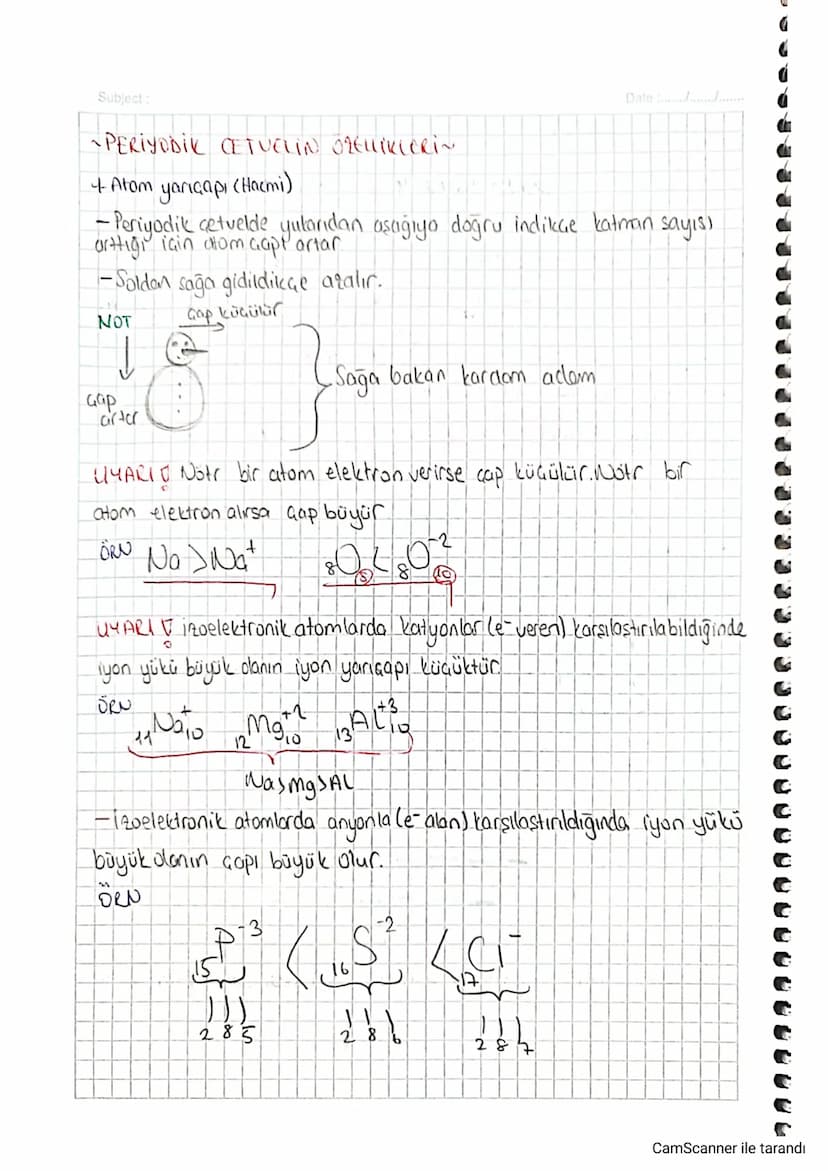 Subject :
Date :....../....../......
~PERİYODİK CETVELİN ÖZELLİKLERİ~
+ Atom yarıçapı (Hacmi)
- Periyodik çetvelde yukarıdan aşağıya doğru indikçe katman sayısı
arttığı için atom çapı artar
- Soldan sağa gidildikçe azalır.
NOT
Çap küçülür
Çap
artar
Sağa bakan kardam adam
UYARI! Nötr bir atom elektron verirse çap küçülür. Nötr bir
atom elektron alırsa çap büyür
ÖRN Na > Na⁺ ₈O₍₈₎ < ₈O⁻²₍₁₀₎
UYARI! izoelektronik atomlarda katyonlar (e⁻ veren) karşılaştırılabildiğinde
iyon yükü büyük olanın iyon yarıçapı küçüktür.
ÖRN
₁₁Na⁺₁₀ ₁₂Mg⁺²₁₀ ₁₃Al⁺³₁₀
Na>Mg>AL
- izoelektronik atomlarda anyonla (e⁻ alan) karşılaştırıldığında iyon yükü
büyük olanın çapı büyük olur.
ÖRN
₁₅P⁻³ < ₁₆S⁻² < ₁₇Cl⁻
2 8 5 2 8 6 2 8 7
CamScanner ile tarandı